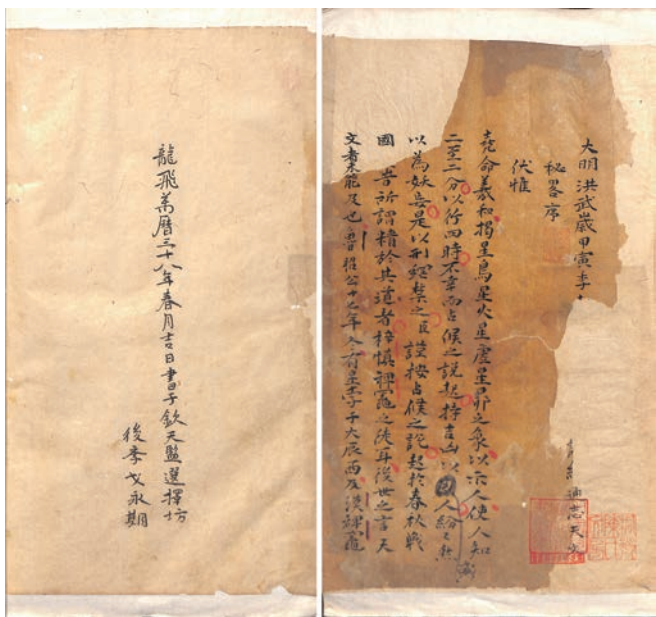 通志天文
大明洪武歲甲寅季
秘畧序
伏惟
堯命羲和揭星鳥星火星虛星昴之象以示人使人知
二至二分以行四時不幸而占候之說起持吉凶以惑人紛紛然
以為妖妄是以刑禁之臣謹按占候之說起於春秋戰
國昔所謂精於其道者梓慎裨竈之徒耳後世之言天
文者未能及也魯昭公十七年冬有星孛于大辰西及漢裨竈
龍飛萬曆三十八年春月吉日書于欽天監選擇坊
後季戈永期